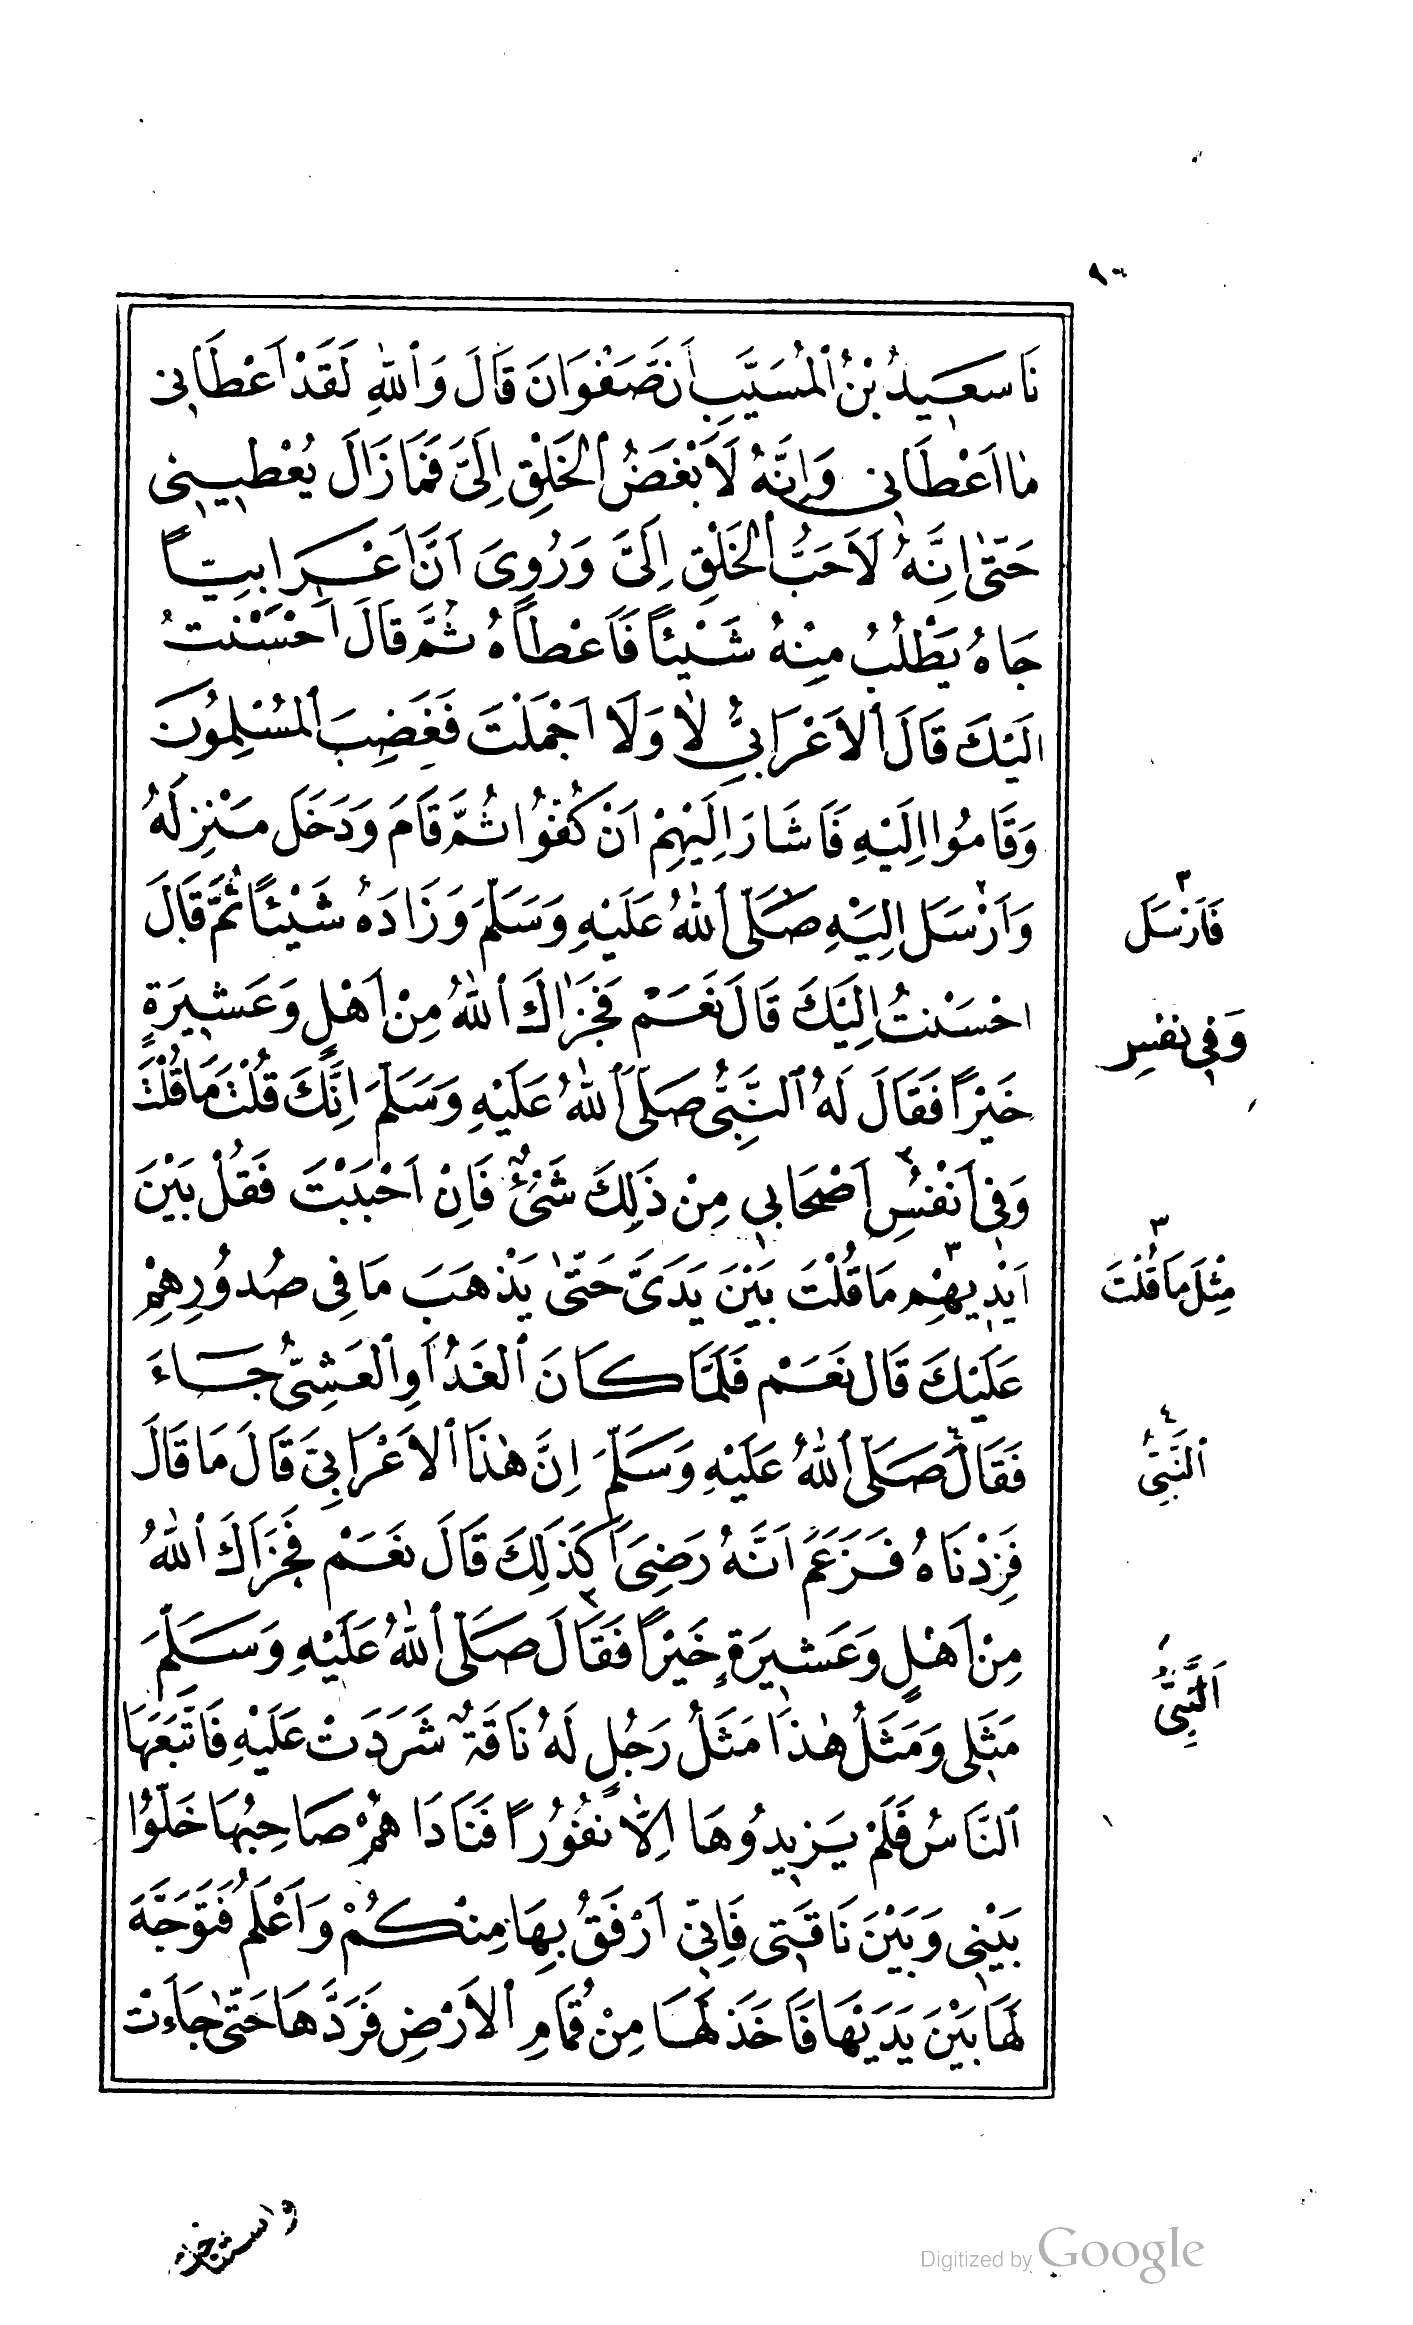 ٩٠
نَا سَعِيدُ بْنُ ٱلْمُسَيَّبِ أَنَّ صَفْوَانَ قَالَ وَٱللّٰهِ لَقَدْ اَعْطَانِى
مَا اَعْطَانِى وَاِنَّهُ لَاَبْغَضُ ٱلْخَلْقِ اِلَىَّ فَمَا زَالَ يُعْطِينِى
حَتّٰى اِنَّهُ لَاَحَبُّ ٱلْخَلْقِ اِلَىَّ وَرُوِىَ اَنَّ اَعْرَابِيّاً
جَاهُ يَطْلُبُ مِنْهُ شَيْئاً فَاَعْطَاهُ ثُمَّ قَالَ اَحْسَنْتُ
اِلَيْكَ قَالَ ٱلاَعْرَابِىُّ لَا وَلَا اَجْمَلْتَ فَغَضِبَ ٱلْمُسْلِمُونَ
وَقَامُوا اِلَيْهِ فَاَشَارَ اِلَيْهِمْ اَنْ كُفُّوا ثُمَّ قَامَ وَدَخَلَ مَنْزِلَهُ
وَاَرْسَلَ اِلَيْهِ صَلَّى ٱللّٰهُ عَلَيْهِ وَسَلَّمَ وَزَادَهُ شَيْئاً ثُمَّ قَالَ
اَحْسَنْتُ اِلَيْكَ قَالَ نَعَمْ فَجَزَاكَ ٱللّٰهُ مِنْ اَهْلٍ وَعَشِيرَةٍ
خَيْراً فَقَالَ لَهُ ٱلنَّبِىُّ صَلَّى ٱللّٰهُ عَلَيْهِ وَسَلَّمَ اِنَّكَ قُلْتَ مَا قُلْتَ
وَفِى اَنْفُسِ اَصْحَابِى مِنْ ذٰلِكَ شَىْءٌ فَاِنْ اَحْبَبْتَ فَقُلْ بَيْنَ
اَيْدِيهِمْ مَا قُلْتَ بَيْنَ يَدَىَّ حَتّٰى يَذْهَبَ مَا فِى صُدُورِهِمْ
عَلَيْكَ قَالَ نَعَمْ فَلَمَّا كَانَ ٱلْغَدُ اَوِ ٱلْعَشِىُّ جَاءَ
فَقَالَ صَلَّى ٱللّٰهُ عَلَيْهِ وَسَلَّمَ اِنَّ هٰذَا ٱلاَعْرَابِىَّ قَالَ مَا قَالَ
فَزِدْنَاهُ فَزَعَمَ اَنَّهُ رَضِىَ اَكَذَلِكَ قَالَ نَعَمْ فَجَزَاكَ ٱللّٰهُ
مِنْ اَهْلٍ وَعَشِيرَةٍ خَيْراً فَقَالَ صَلَّى ٱللّٰهُ عَلَيْهِ وَسَلَّمَ
مَثَلِى وَمَثَلُ هٰذَا مَثَلُ رَجُلٍ لَهُ نَاقَةٌ شَرَدَتْ عَلَيْهِ فَاتَّبَعَهَا
ٱلنَّاسُ فَلَمْ يَزِيدُوهَا اِلَّا نُفُوراً فَنَادَاهُمْ صَاحِبُهَا خَلُّوا
بَيْنِى وَبَيْنَ نَاقَتِى فَاِنِّى اَرْفَقُ بِهَا مِنْكُمْ وَاَعْلَمُ فَتَوَجَّهَ
لَهَا بَيْنَ يَدَيْهَا فَاَخَذَ لَهَا مِنْ قُمَامِ ٱلاَرْضِ فَرَدَّهَا حَتّٰى جَاءَتْ
٣
فَاَرْسَلَ
وَفِى نَفْسِ
٣
مِثْلَ مَا قُلْتَ
٤
ٱلنَّبِىُّ
اَلنَّبِىُّ
وَاسْتَنَاخَتْ
Digitized by Google